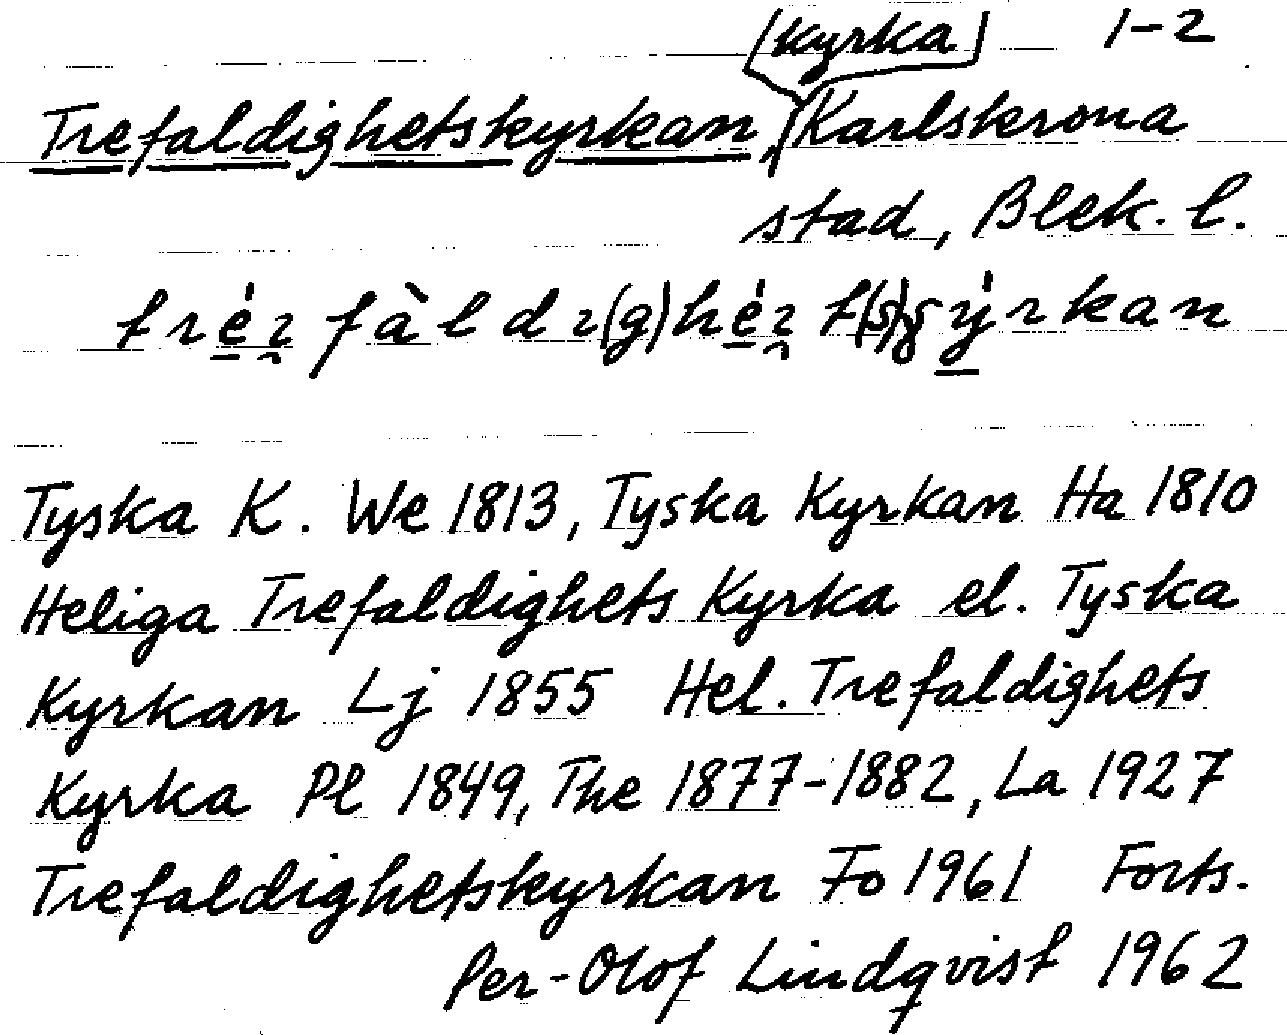 [kyrka] 1-2
Trefaldighetskyrkan, Karlskrona
stad, Blek. l.
Tyska K. We 1813, Tyska Kyrkan Ha 1810
Heliga Trefaldighets Kyrka el. Tyska
Kyrkan Lj 1855 Hel. Trefaldighets
Kyrka Pl 1849, The 1877-1882, La 1927
Trefaldighetskyrkan Fo 1961 Forts.
Per-Olof Lindqvist 1962